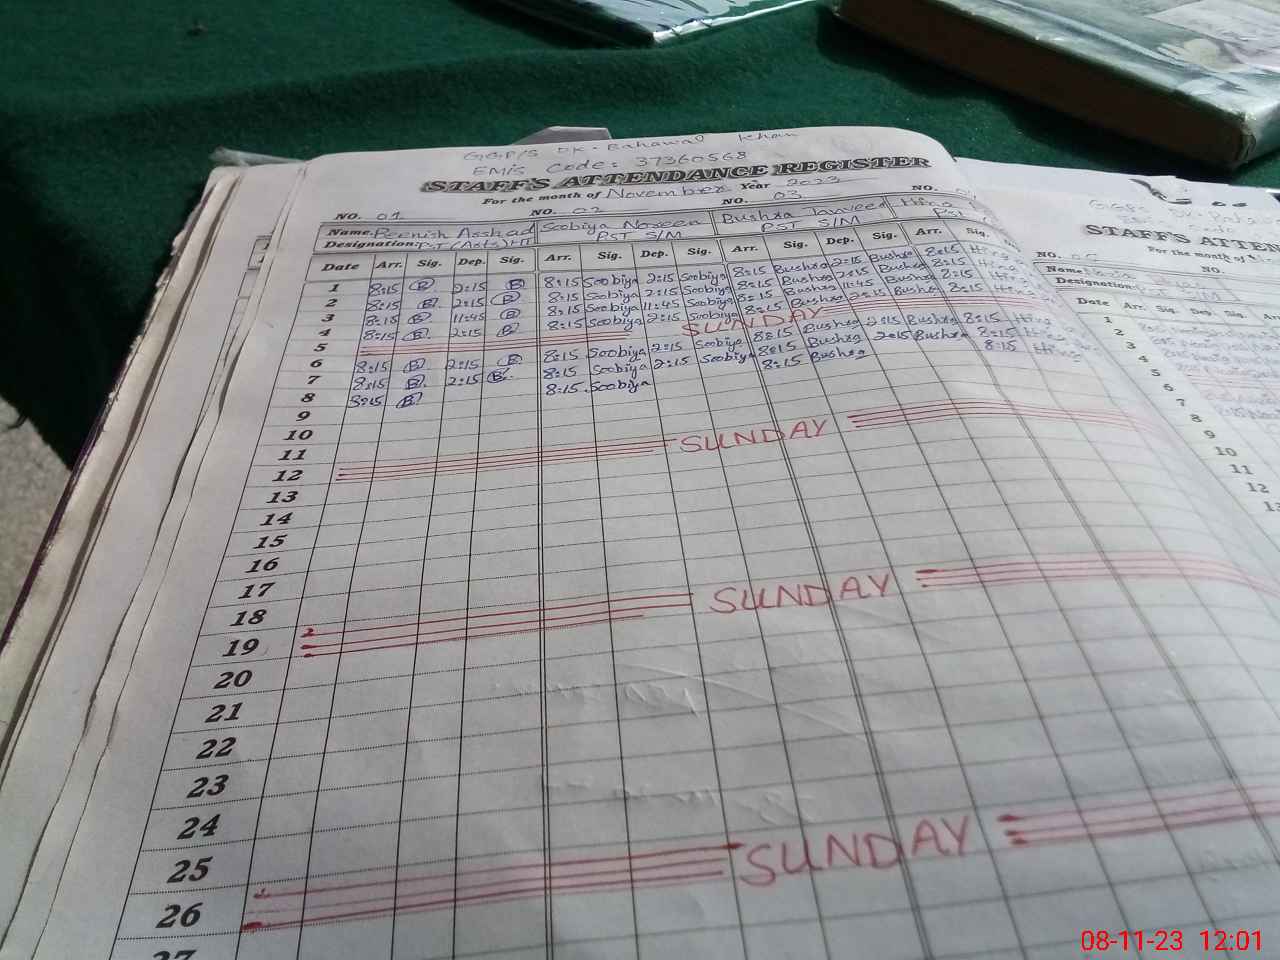 GGP/S DK. Bahawal Khan
EMIS Code: 37360568
STAFF'S ATTENDANCE REGISTER
For the month of November Year 2023
NO. 01 NO. 02 NO. 03 NO.
Name: Beenish Asshad Soobiya Noreen Bushra Javveed Hina
Designation: PST (Arts) HT PST S/M PST S/M PST
Date Arr. Sig. Dep. Sig. Arr. Sig. Dep. Sig. Arr. Sig. Dep. Sig. Arr. Sig.
1 8:15 B 2:15 B 8:15 Soobiya 2:15 Soobiya 8:15 Bushra 2:15 Bushra 8:15
2 8:15 B 2:15 B 8:15 Soobiya 2:15 Soobiya 8:15 Bushra 2:15 Bushra 8:15
3 8:15 B 11:45 B 8:15 Soobiya 11:45 Soobiya 8:15 Bushra 11:45 Bushra 8:15
4 8:15 B 2:15 B 8:15 Soobiya 2:15 Soobiya 8:15 Bushra 2:15 Bushra
5 SUNDAY
6 8:15 B 2:15 B 8:15 Soobiya 2:15 Soobiya 8:15 Bushra 2:15 Bushra 8:15
7 8:15 B 2:15 B 8:15 Soobiya 2:15 Soobiya 8:15 Bushra 2:15 Bushra 8:15
8 8:15 B 8:15 Soobiya 8:15 Bushra 8:15
9
10
11
12 SUNDAY
13
14
15
16
17
18
19 SUNDAY
20
21
22
23
24
25
26 SUNDAY
27
STAFF'S ATTEN
For the month of
NO.
Name
Designation:
Date Arr. Sig. Dep. Sig.
1
2
3
4
5
6
7
8
9
10
11
12
13
08-11-23 12:01